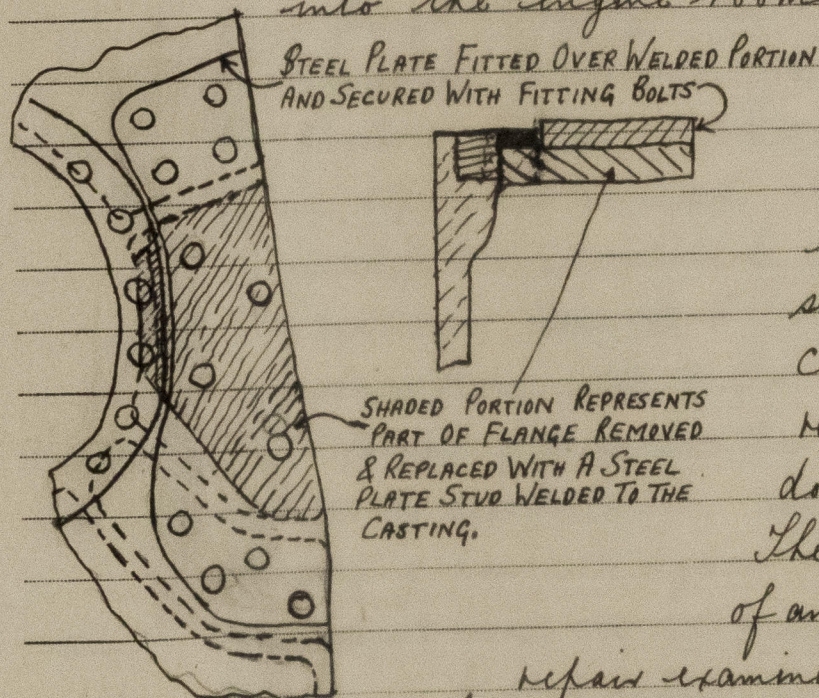 into the engine room
STEEL PLATE FITTED OVER WELDED PORTION
AND SECURED WITH FITTING BOLTS
SHADED PORTION REPRESENTS
PART OF FLANGE REMOVED
& REPLACED WITH A STEEL
PLATE STUD WELDED TO THE
CASTING.
do
The
of an
repair examin